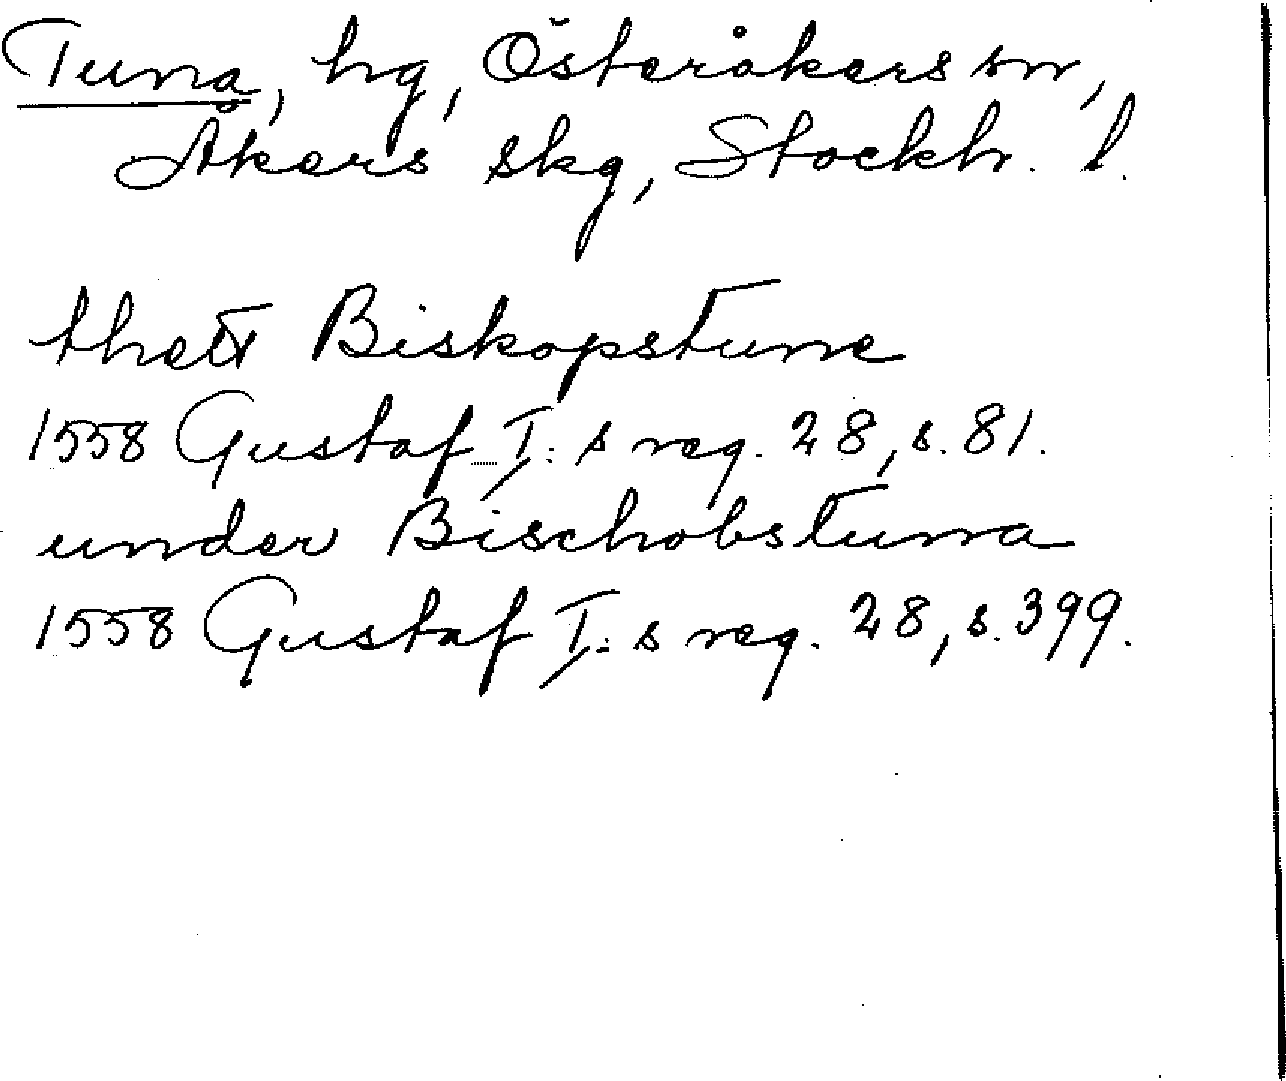 Tuna, hg, Österåkers sn,
Åkers skg, Stockh. l.
thett Biskopstune
1558 Gustaf I:s reg. 28, s. 81.
under Bischobstuna
1558 Gustaf I:s reg. 28, s. 399.